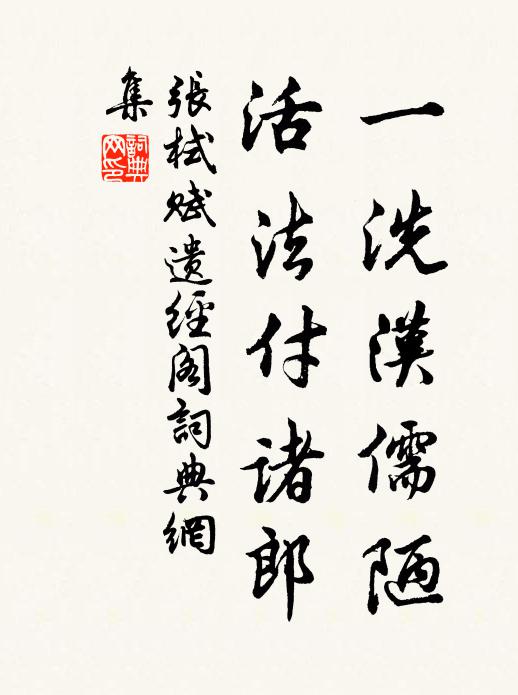 一洗漢儒陋
活法付諸郎
張栻賦遺經閣詞典網
集
詞典網印